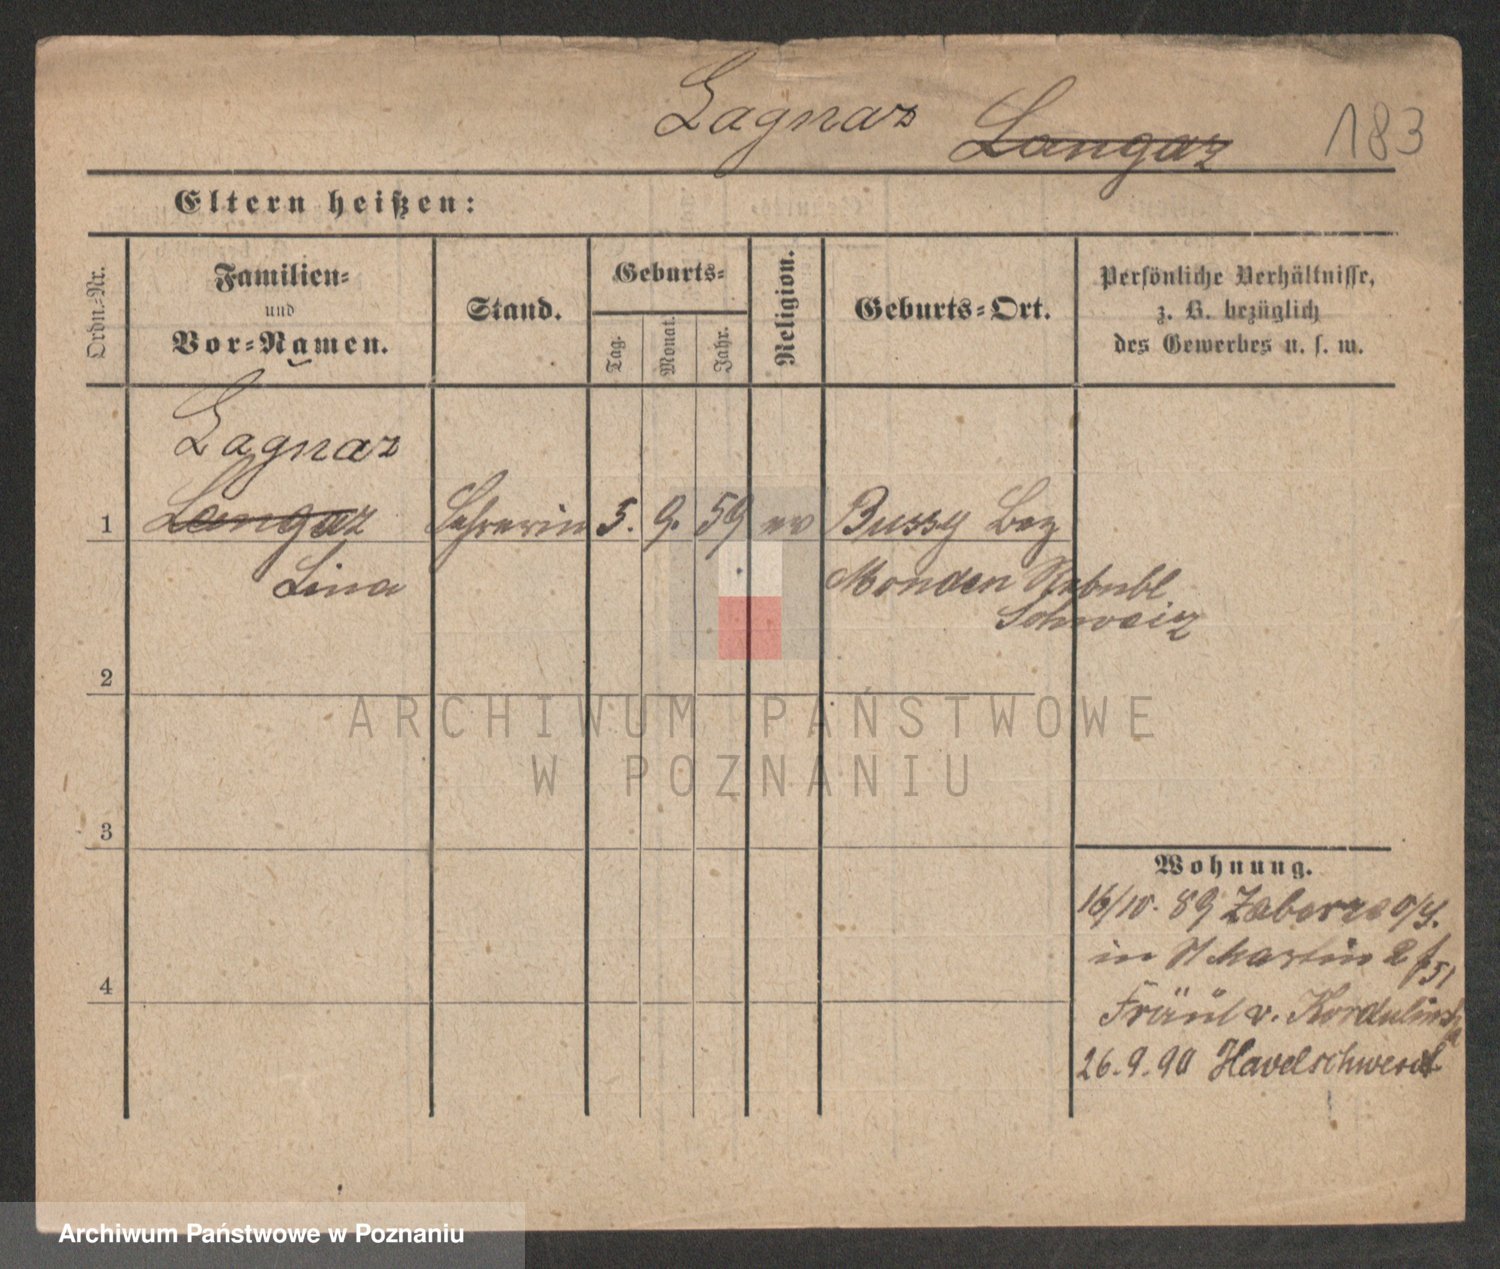 Lagnaz ~~Langaz~~ 183
Eltern heißen:
Ordn.=Nr.
Familien=
und
Vor=Namen.
Stand.
Geburts=
Tag.
Monat.
Jahr.
Religion.
Geburts=Ort.
Persönliche Verhältnisse,
z. B. bezüglich
des Gewerbes u. s. w.
Lagnaz
1 ~~Langaz~~ Lehrerin 5. 9. 59 ev Bussy Bez
Lina Moudon Republ
Schweiz
2
3
4
Wohnung.
16/10. 89 Zaborze o/S.
in St Martin
Fräul v.
26.9.90 Havelschwerdt
ARCHIWUM PAŃSTWOWE
W POZNANIU
Archiwum Państwowe w Poznaniu